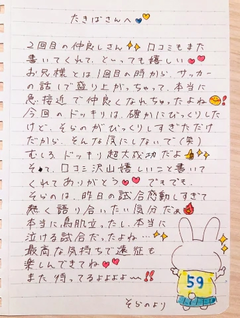 たきばさんへ🧡💙
2回目の仲良しさん✨ 口コミもまた
書いてくれて、とっても嬉しい❤❤
お兄様とは1回目の時から、サッカー
の話で盛り上がっちゃって、本当に
急接近で仲良くなれちゃったよね‼
今回のドッキリは、確かにびっくりした
けど、そらのがびっくりしすぎただけ
だから、そんな気にしないで(笑)
むしろドッキリ超大成功だよ👍✨
そして、口コミ沢山嬉しいこと書いて
くれてありがとう❤♡ でもでも、
そらのは、昨日の試合感動しすぎて
熱く語り合いたい気分だぁ
本当に鳥肌立ったし、本当に
泣ける試合だったよね…✨
最高な気持ちで遠征も
楽しんできてね❤❤
また待ってるよよよよ〜‼
そらのより
59